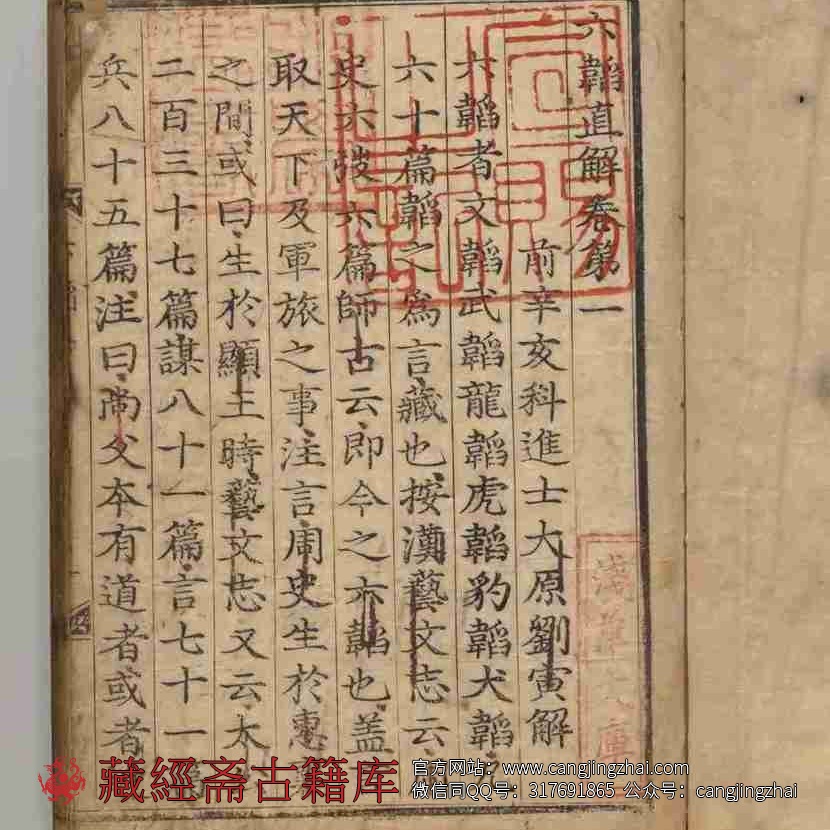 六韜直解卷第一
前辛亥科進士大原劉寅解
六韜者文韜武韜龍韜虎韜豹韜犬韜
六十篇韜之為言藏也按漢藝文志云
史六弢六篇師古云即今之六韜也盖
取天下及軍旅之事注言周史生於惠
之間或曰生於顯王時藝文志又云太
二百三十七篇謀八十一篇言七十一
兵八十五篇注曰尚父本有道者或者
淺草文庫
藏經斋古籍库
官方网站：www.cangjingzhai.com
微信同QQ号：317691865 公众号：cangjingzhai